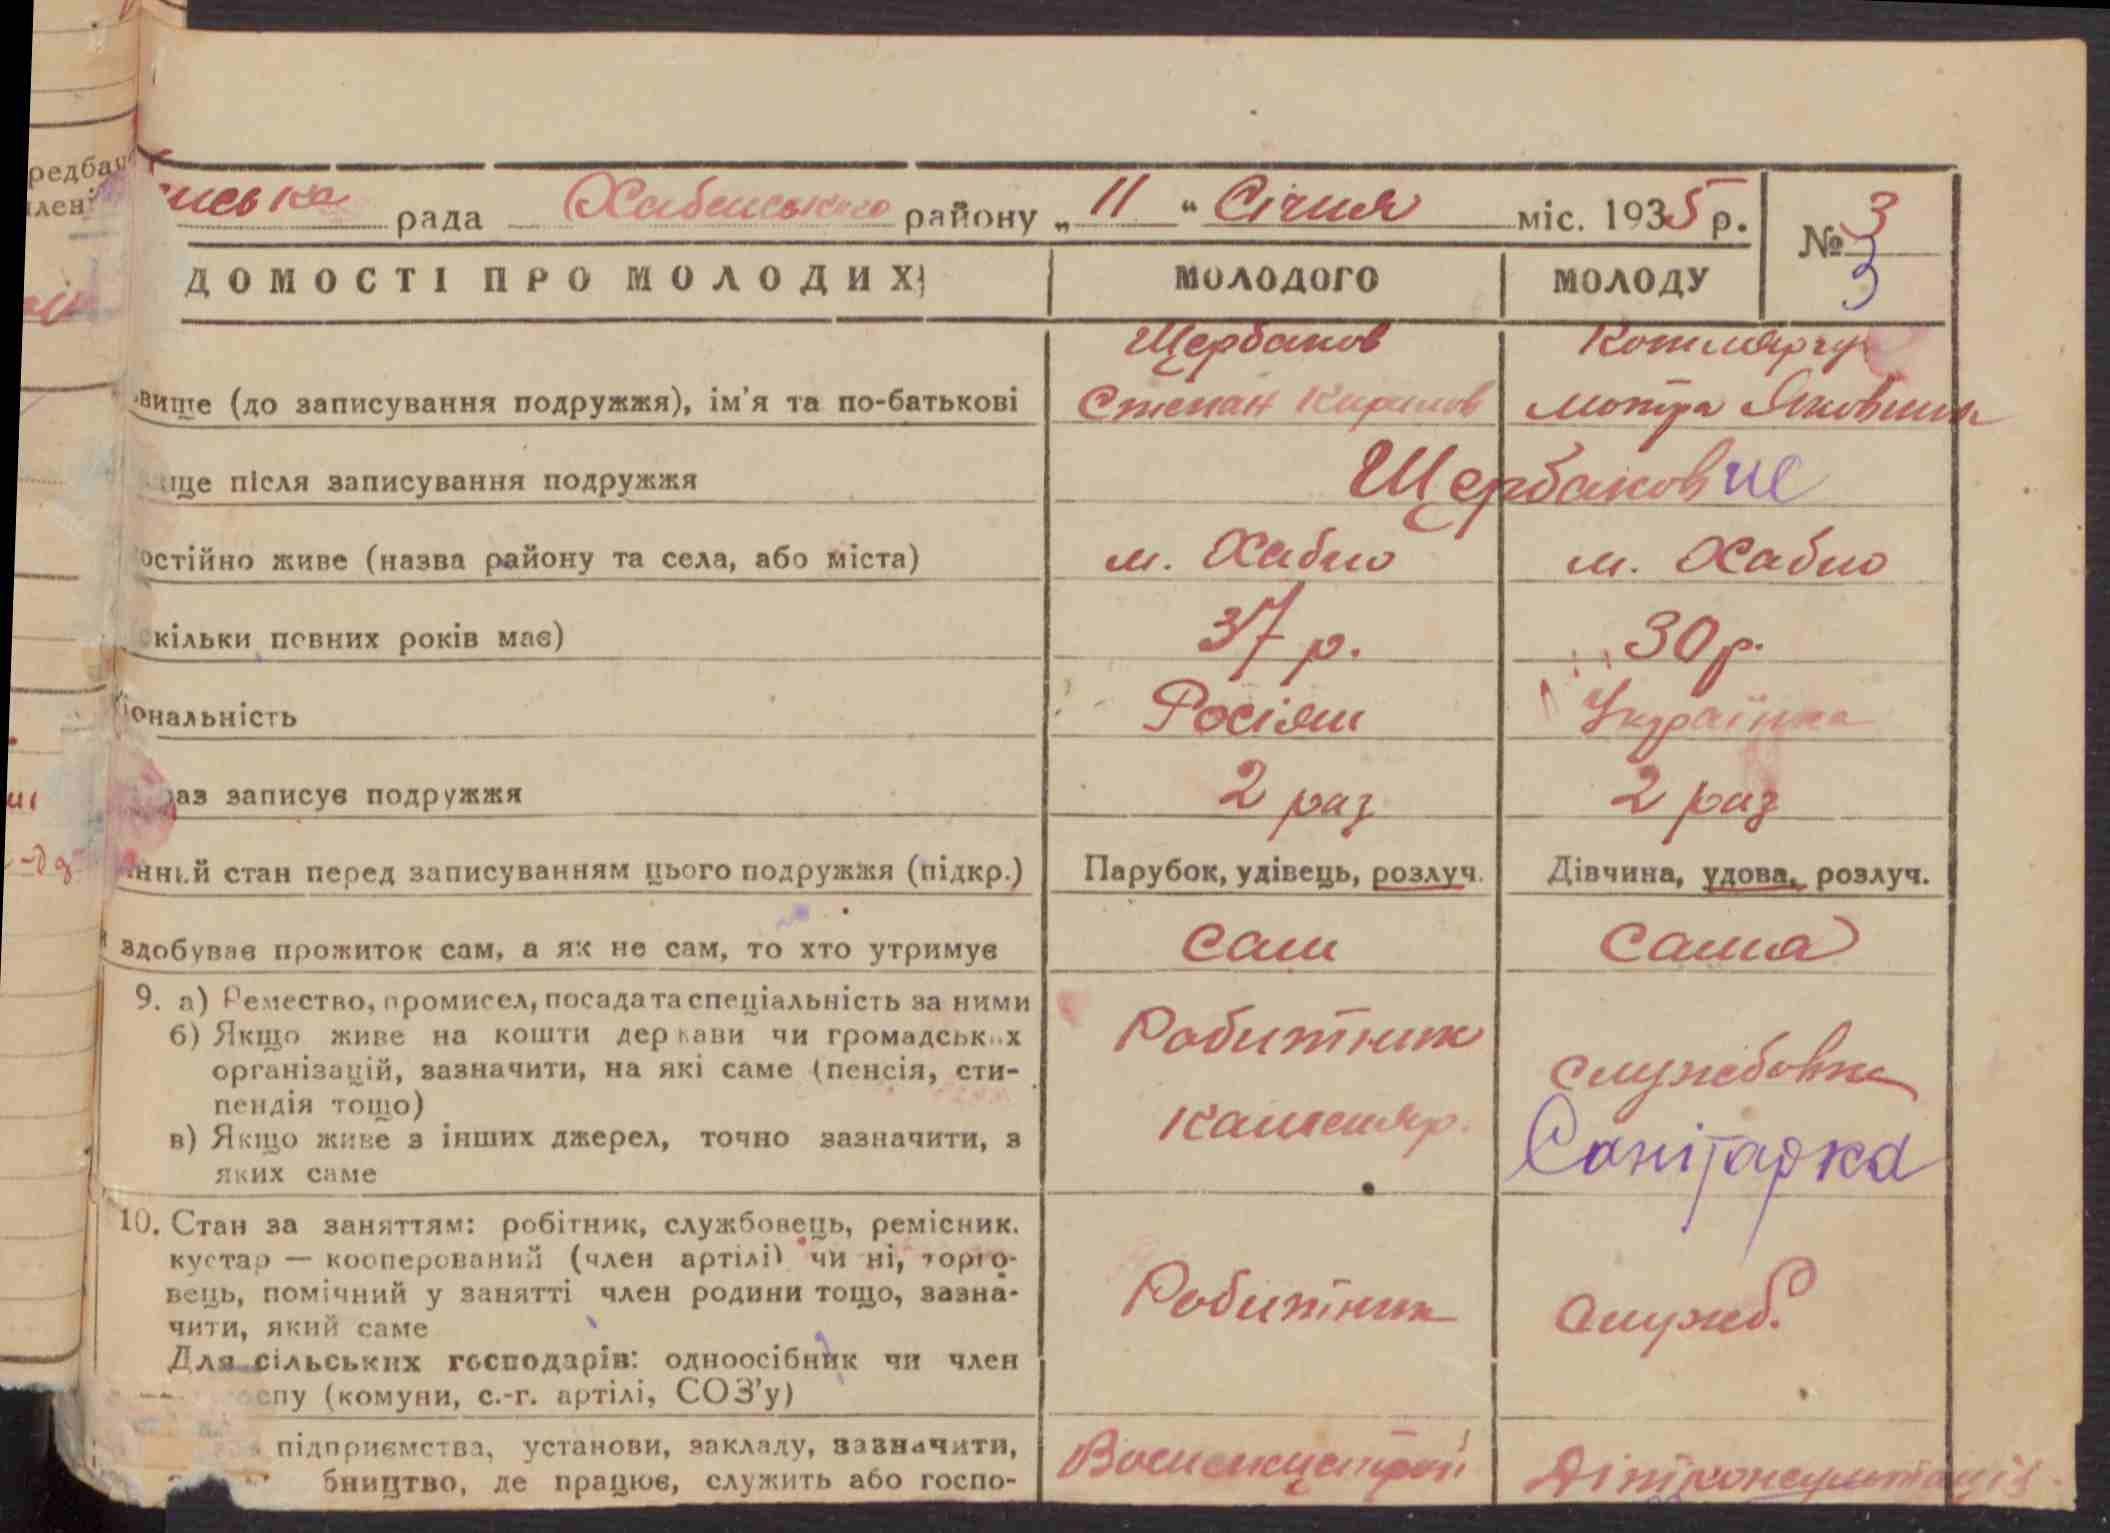 редбач
лен
ська рада Хабенського району „ 11 “ Січня міс. 1935 р.
№ 3
3
ДОМОСТІ ПРО МОЛОДИХ
МОЛОДОГО
МОЛОДУ
вище (до записування подружжя), ім'я та по-батькові
Щербаков
Степан Кирилов
Котлярчу
Мотря Яковина
ще після записування подружжя
Щербакови
остійно живе (назва району та села, або міста)
м. Хабно
м. Хабно
скільки повних років має)
37 р.
30 р.
іональність
Росіян
Українка
раз записує подружжя
2 раз
2 раз
нний стан перед записуванням цього подружжя (підкр.)
Парубок, удівець, розлуч.
Дівчина, удова, розлуч.
здобуває прожиток сам, а як не сам, то хто утримує
Сам
Сама
9. а) Ремество, промисел, посада та спеціальність за ними
б) Якщо живе на кошти держави чи громадських
організацій, зазначити, на які саме (пенсія, сти-
пендія тощо)
в) Якщо живе з інших джерел, точно зазначити, з
яких саме
Робитник
каменяр.
службовка
Санітарка
10. Стан за заняттям: робітник, службовець, ремісник.
кустар — кооперований (член артілі) чи ні, торго-
вець, помічний у занятті член родини тощо, зазна-
чити, який саме
Для сільських господарів: одноосібник чи член
оспу (комуни, с.-г. артілі, СОЗ'у)
Робитник
Служб.
підприємства, установи, закладу, зазначити,
бництво, де працює, служить або госпо-
Дітконсультація